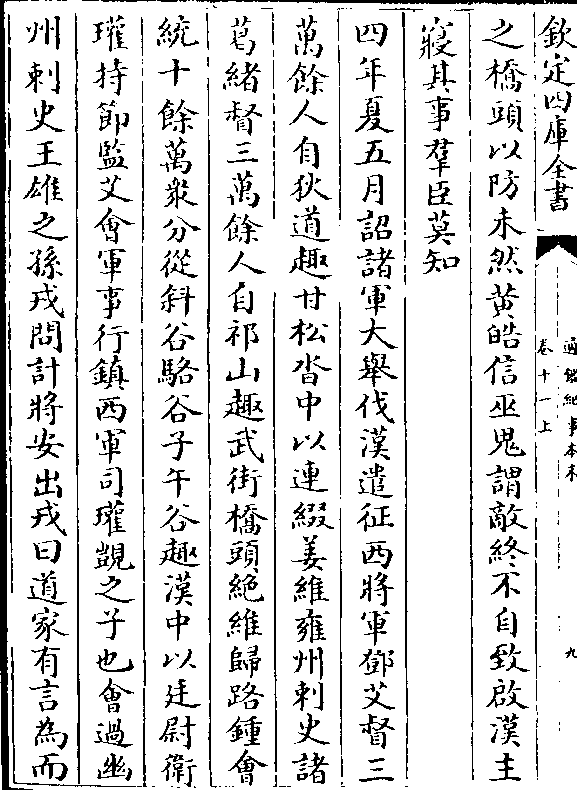 欽定四庫全書
通鑑紀事本末
卷十一上
九
之橋頭以防未然黄皓信巫鬼謂敵終不自致啟漢主
寢其事羣臣莫知
四年夏五月詔諸軍大舉伐漢遣征西將軍鄧艾督三
萬餘人自狄道趣甘松沓中以連綴姜維雍州刺史諸
葛緒督三萬餘人自祁山趣武街橋頭絶維歸路鍾會
統十餘萬衆分從斜谷駱谷子午谷趣漢中以廷尉衛
瓘持節監艾會軍事行鎮西軍司瓘覬之子也會過幽
州刺史王雄之孫戎問計將安出戎曰道家有言為而